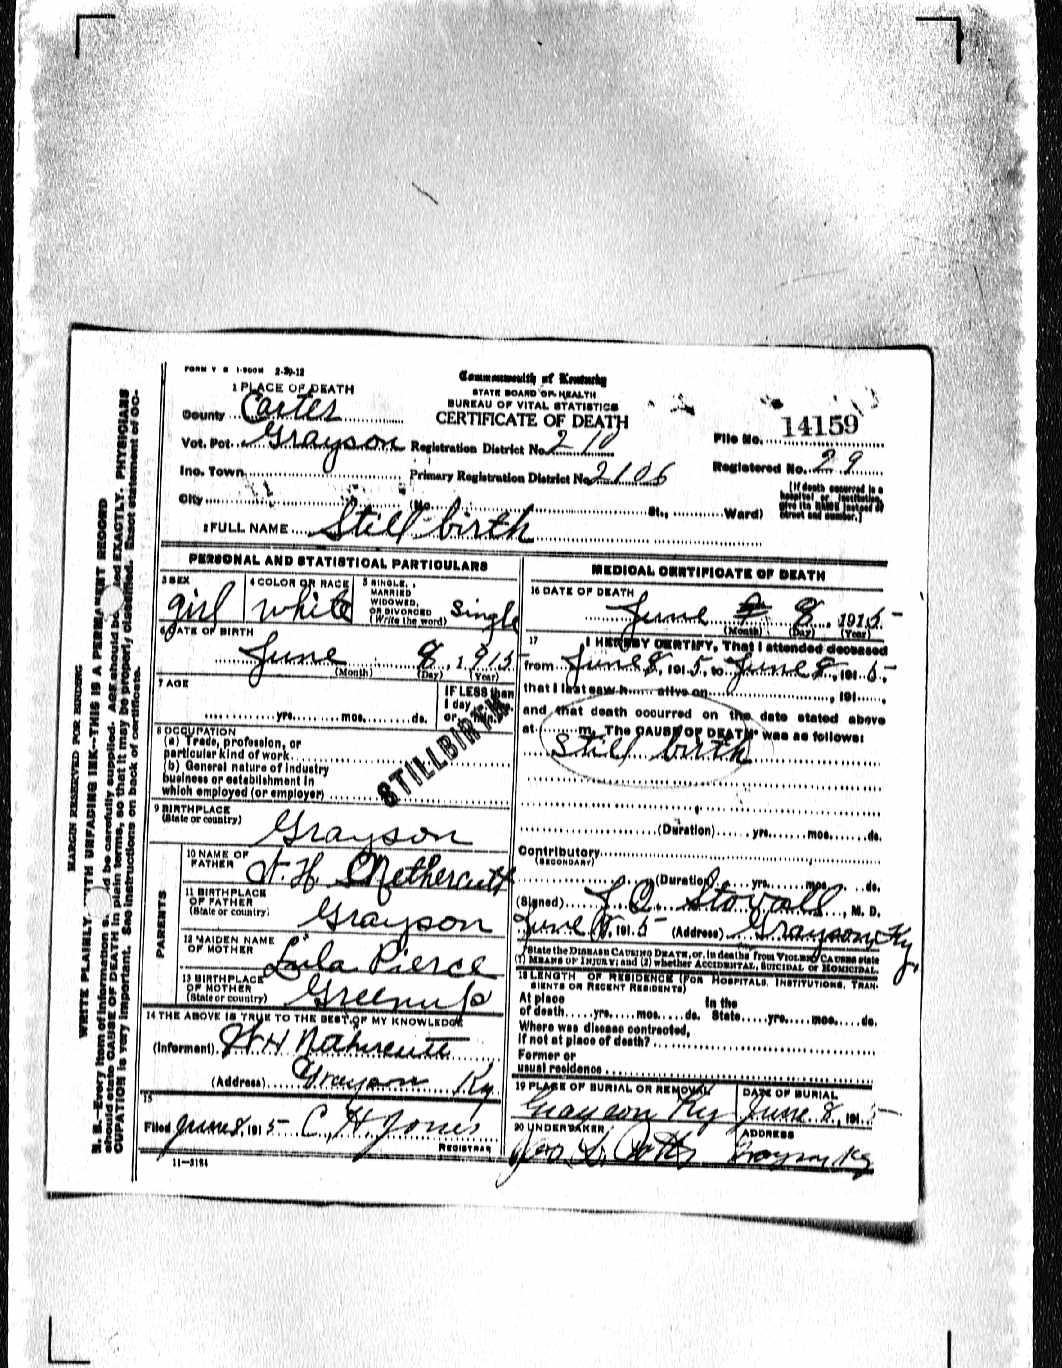 FORM V S 1-500M 2-29-12
Commonwealth of Kentucky
STATE BOARD OF HEALTH
BUREAU OF VITAL STATISTICS
CERTIFICATE OF DEATH
1 PLACE OF DEATH
County Carter
Vot. Pct. Grayson Registration District No. 210
File No. 14159
Inc. Town Primary Registration District No. 2106
Registered No. 29
City (No. St., Ward)
[If death occurred in a hospital or institution, give its NAME instead of street and number.]
2 FULL NAME Still-birth
PERSONAL AND STATISTICAL PARTICULARS
3 SEX girl
4 COLOR OR RACE white
5 SINGLE, MARRIED WIDOWED, OR DIVORCED (Write the word) Single
6 DATE OF BIRTH
June 8, 1915
(Month) (Day) (Year)
7 AGE
yrs. mos. ds.
IF LESS than
1 day
or
STILLBIRTH
8 OCCUPATION
(a) Trade, profession, or
particular kind of work
b) General nature of industry
business or establishment in
which employed (or employer)
9 BIRTHPLACE
(State or country) Grayson
PARENTS
10 NAME OF FATHER W. H. Nethercutt
11 BIRTHPLACE OF FATHER (State or country) Grayson
12 MAIDEN NAME OF MOTHER Lula Pierce
13 BIRTHPLACE OF MOTHER (State or country) Greenup
14 THE ABOVE IS TRUE TO THE BEST OF MY KNOWLEDGE
(Informant) W H Nethercutt
(Address) Grayson Ky
15
Filed June 8, 1915 C H Jones
REGISTRAR
11-3184
MEDICAL CERTIFICATE OF DEATH
16 DATE OF DEATH
June 8, 1915
(Month) (Day) (Year)
17 I HEREBY CERTIFY, That I attended deceased
from June 8, 1915, to June 8, 1915,
that I last saw h alive on , 191 ,
and that death occurred on the date stated above
at m. The CAUSE OF DEATH* was as follows:
Still birth
(Duration) yrs. mos. ds.
Contributory
(SECONDARY)
(Duration) yrs. mos. ds.
(Signed) J. Q. Stovall, M. D.
June 8, 1915 (Address) Grayson, Ky.
*State the DISEASE CAUSING DEATH, or, in deaths from VIOLENT CAUSES state
(1) MEANS OF INJURY; and (2) whether ACCIDENTAL, SUICIDAL or HOMICIDAL.
18 LENGTH OF RESIDENCE (FOR HOSPITALS, INSTITUTIONS, TRAN-
SIENTS OR RECENT RESIDENTS)
At place In the
of death yrs. mos. ds. State yrs. mos. ds.
Where was disease contracted,
if not at place of death?
Former or
usual residence
19 PLACE OF BURIAL OR REMOVAL DATE OF BURIAL
Grayson Ky June 8, 1915
20 UNDERTAKER ADDRESS
Grayson Ky
MARGIN RESERVED FOR BINDING
WRITE PLAINLY, WITH UNFADING INK—THIS IS A PERMANENT RECORD
N. B.—Every item of information should be carefully supplied. AGE should be stated EXACTLY. PHYSICIANS
should state CAUSE OF DEATH in plain terms, so that it may be properly classified. Exact statement of OC-
CUPATION is very important. See instructions on back of certificate.